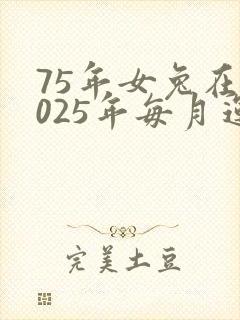 75年女兔在
025年每月运
完美土豆